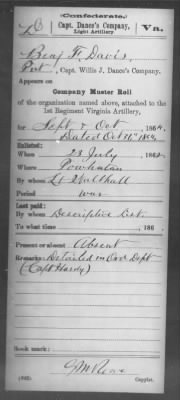 (Confederate.)
D Capt. Dance's Company, Light Artillery Va.
Benj. F. Davis,
Pvt, Capt. Willis J. Dance's Company,
Appears on
Company Muster Roll
of the organization named above, attached to the
1st Regiment Virginia Artillery,
for Sept & Oct, 1864.
Dated Oct 31st 1864
Enlisted:
When 23 July, 1862.
Where Powhatan
By whom Lt Walthall
Period war
Last paid:
By whom Descriptive List.
To what time , 186 .
Present or absent Absent
Remarks: Detailed in Ord Dept
(Capt Hardy)
Book mark:
Copyist.